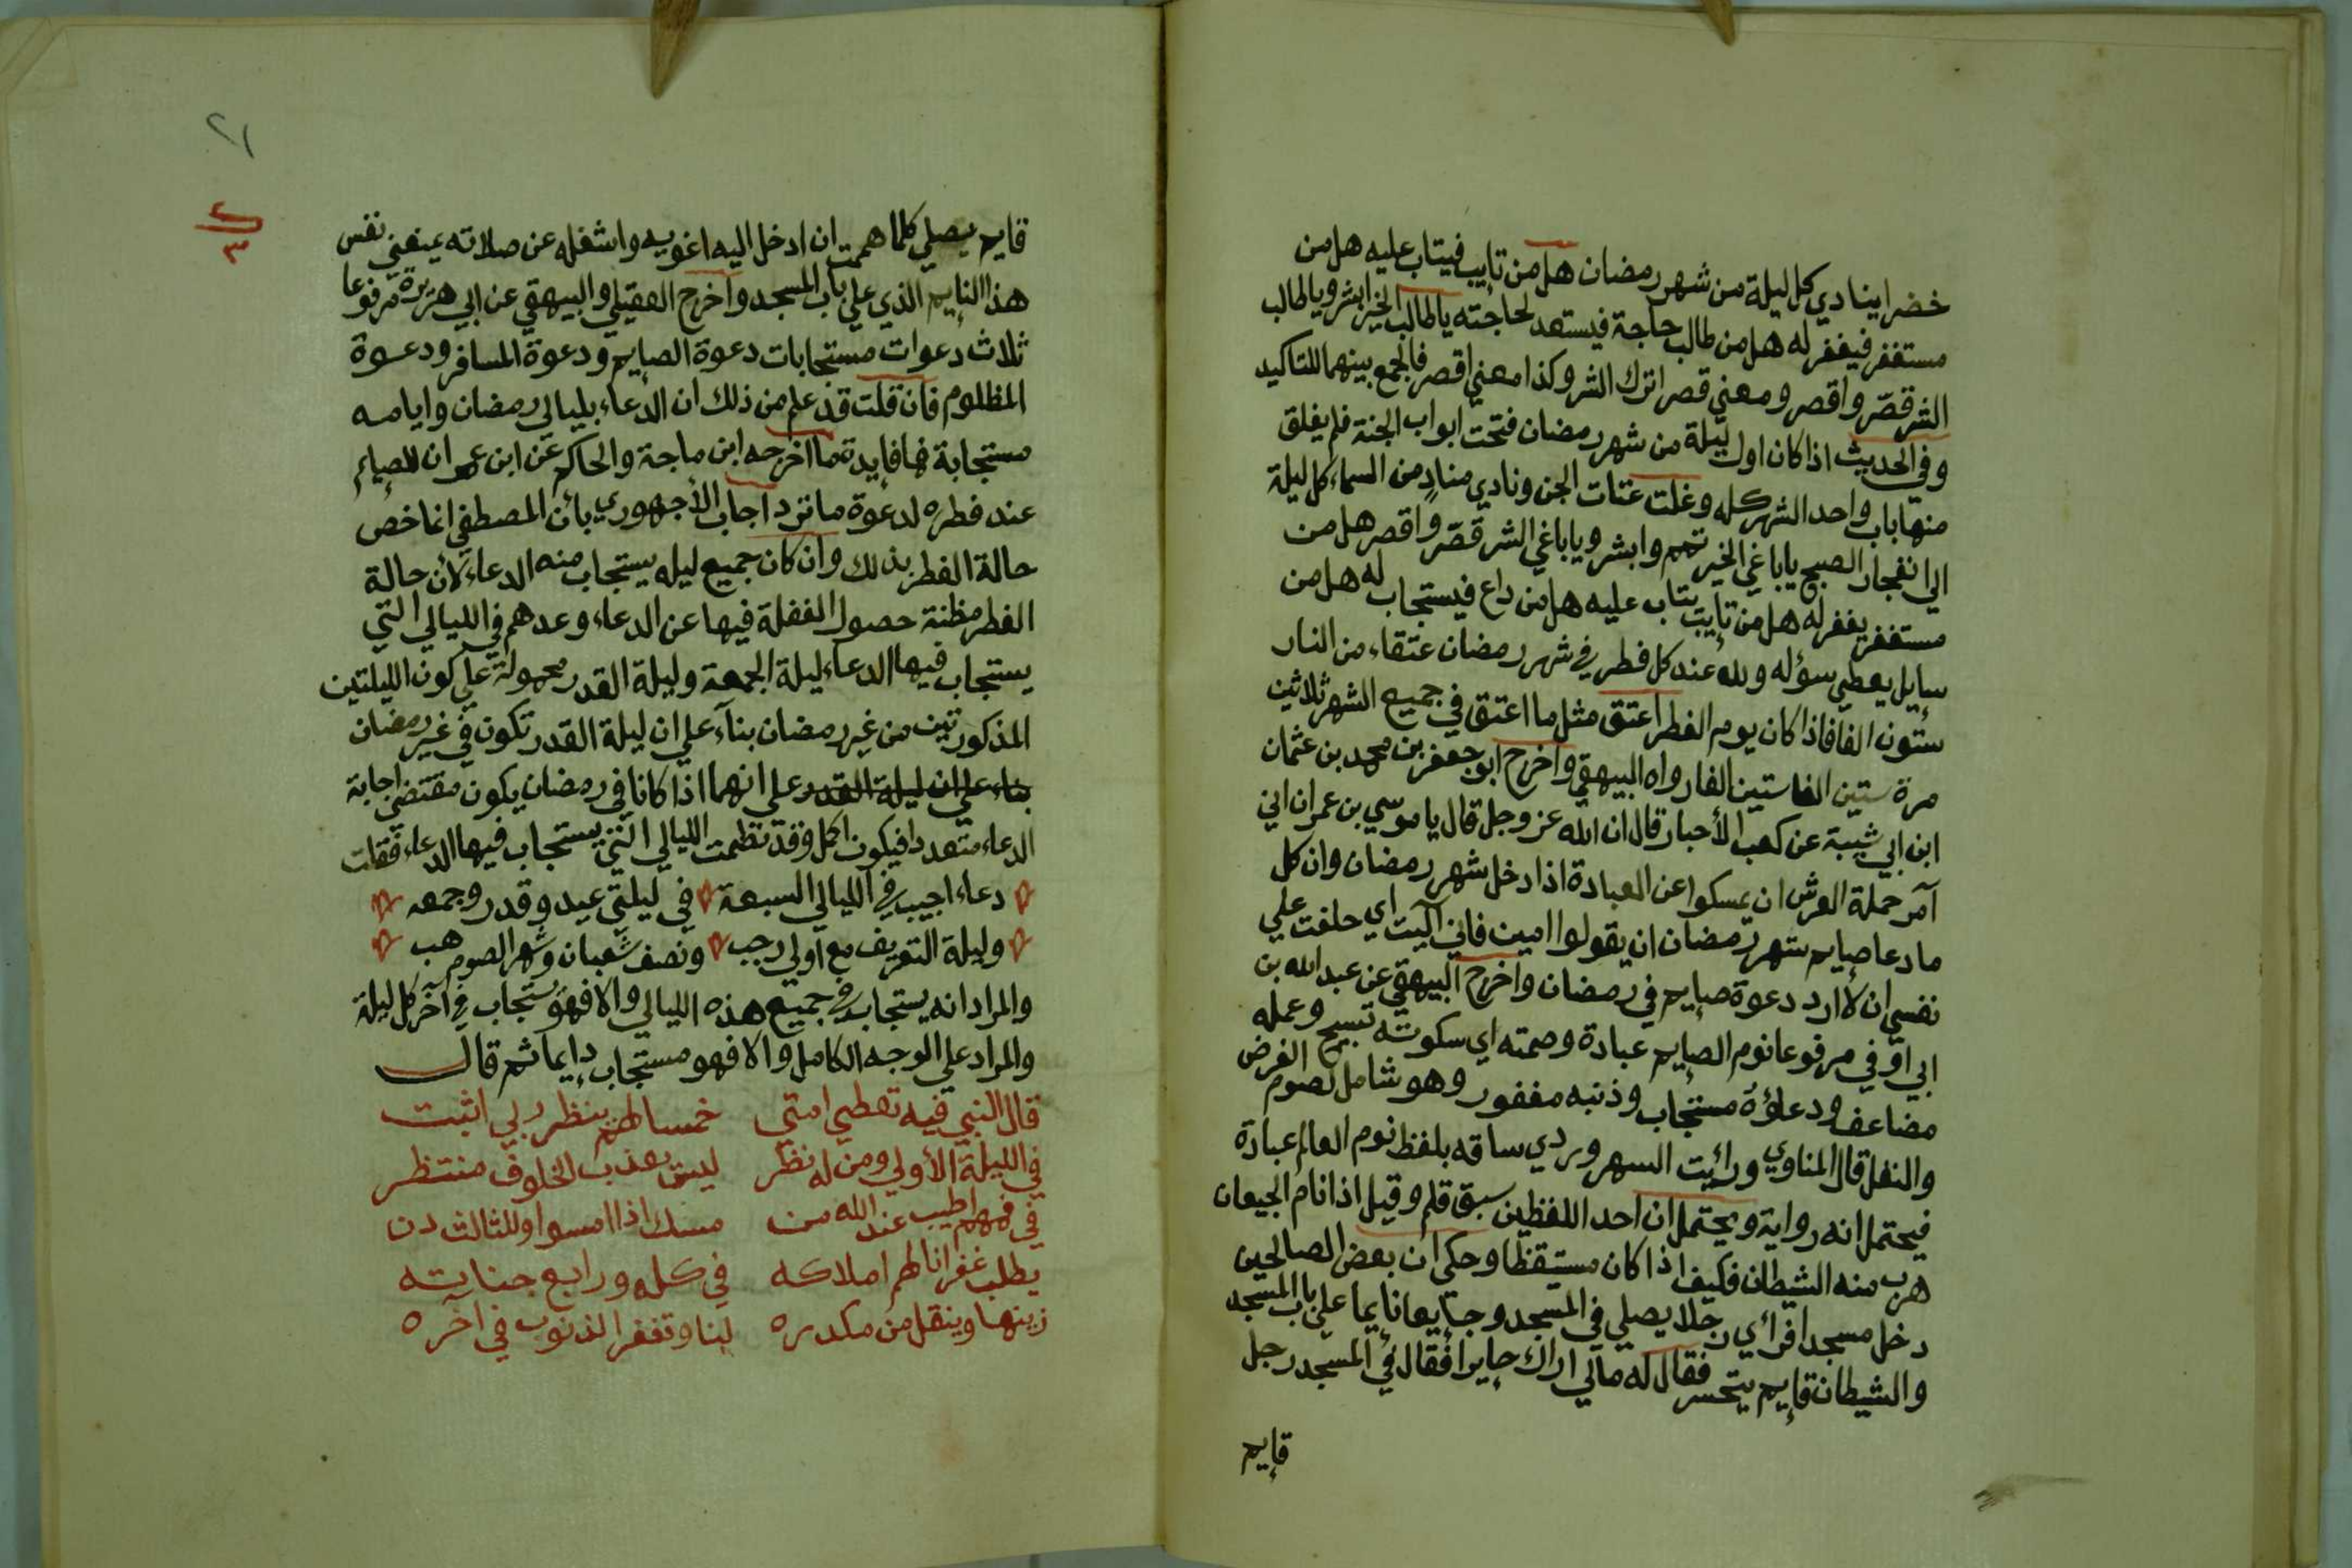 خضرا ينادي كل ليلة من شهر رمضان هل من تايب فيتاب عليه هل من
مستغفر فيغفر له هل من طالب حاجة فيستعد لحاجته يا طالب الخير ابشر ويا طالب
الشر قصّر واقصر ومعني قصر اترك الشر وكذا معني اقصر فالجمع بينهما للتاكيد
وفي الحديث اذا كان اول ليلة من شهر رمضان فتحت ابواب الجنة فلم يغلق
منها باب واحد الشهر كله وغلت عتات الجن ونادي منادٍ من السماء كل ليلة
الي انفجار الصبح يا باغي الخير تمم وابشر ويا باغي الشر قصّر واقصر هل من
مستغفر يغفر له هل من تايب يتاب عليه هل من داع فيستجاب له هل من
سايل يعطي سؤله ولله عند كل فطر في شهر رمضان عتقاء من النار
ستون الفا فاذا كان يوم الفطر اعتق مثل ما اعتق في جميع الشهر ثلاثين
مرة ستين الفا ستين الفا رواه البيهقي واخرج ابو جعفر بن محمد بن عثمان
ابن ابي شيبة عن كعب الأحبار قال ان الله عز وجل قال يا موسي بن عمران اني
آمر حملة العرش ان يمسكوا عن العبادة اذا دخل شهر رمضان وان كل
ما دعا صايم شهر رمضان ان يقولوا امين فاني آليت اي حلفت علي
نفسي ان لا ارد دعوة صايم في رمضان واخرج البيهقي عن عبد الله بن
ابي اوفي مرفوعا نوم الصايم عبادة وصمته اي سكوته تسبيح وعمله
مضاعف ودعاؤه مستجاب وذنبه مغفور وهو شامل لصوم الفرض
والنفل قال المناوي ورأيت السهروردي ساقه بلفظ نوم العالم عبادة
فيحتمل انه رواية ويحتمل ان احد اللفظين سبق قلم وقيل اذا نام الجيعان
هرب منه الشيطان فكيف اذا كان مستيقظا وحكي ان بعض الصالحين
دخل مسجدا فرأي رجلا يصلي في المسجد وجايعا نايما علي باب المسجد
والشيطان قايم يتحسر فقال له مالي اراك حايرا فقال في المسجد رجل
قايم
٢١
قايم يصلي كلما هممت ان ادخل اليه اغويه واشغله عن صلاته يمنعني نفس
هذا النايم الذي علي باب المسجد واخرج العقيلي والبيهقي عن ابي هريرة مرفوعا
ثلاث دعوات مستجابات دعوة الصايم ودعوة المسافر ودعوة
المظلوم فان قلت قد علم من ذلك ان الدعاء بليالي رمضان وايامه
مستجابة فما فايدة ما اخرجه ابن ماجة والحاكم عن ابن عمر ان للصايم
عند فطره لدعوة ما ترد اجاب الأجهوري بأن المصطفي انما خص
حالة الفطر بذلك وان كان جميع ليله يستجاب منه الدعاء لأن حالة
الفطر مظنة حصول الغفلة فيها عن الدعاء وعدهم في الليالي التي
يستجاب فيها الدعاء ليلة الجمعة وليلة القدر محمولة علي كون الليلتين
المذكورتين من غير رمضان بناء علي ان ليلة القدر تكون في غير رمضان
بناء علي ان ليلة القدر وعلي انهما اذا كانا في رمضان يكون مقتضي اجابة
الدعاء متعددا فيكون اكمل وقد نظمت الليالي التي يستجاب فيها الدعاء فقلت
دعاء اجيب في الليالي السبعة في ليلتي عيد وقدر وجمعه
وليلة التعريف مع اولي رجب ونصف شعبان وشهر الصوم هب
والمراد انه يستجاب في جميع هذه الليالي والا فهو يستجاب في آخر كل ليلة
والمراد علي الوجه الكامل والا فهو مستجاب دايما ثم قال
قال النبي فيه تعطي امتي خمسا لهم بنظر ربي اثبت
في الليلة الأولي ومن له نظر ليس يعذب الخلوف منتظر
في فمهم اطيب عند الله من مسك اذا امسوا وللثالث دن
يطلب غفرانا لهم املاكه في كله ورابع جنايته
زينها وينقل من مكدره لبنا وتغفر الذنوب في آخره